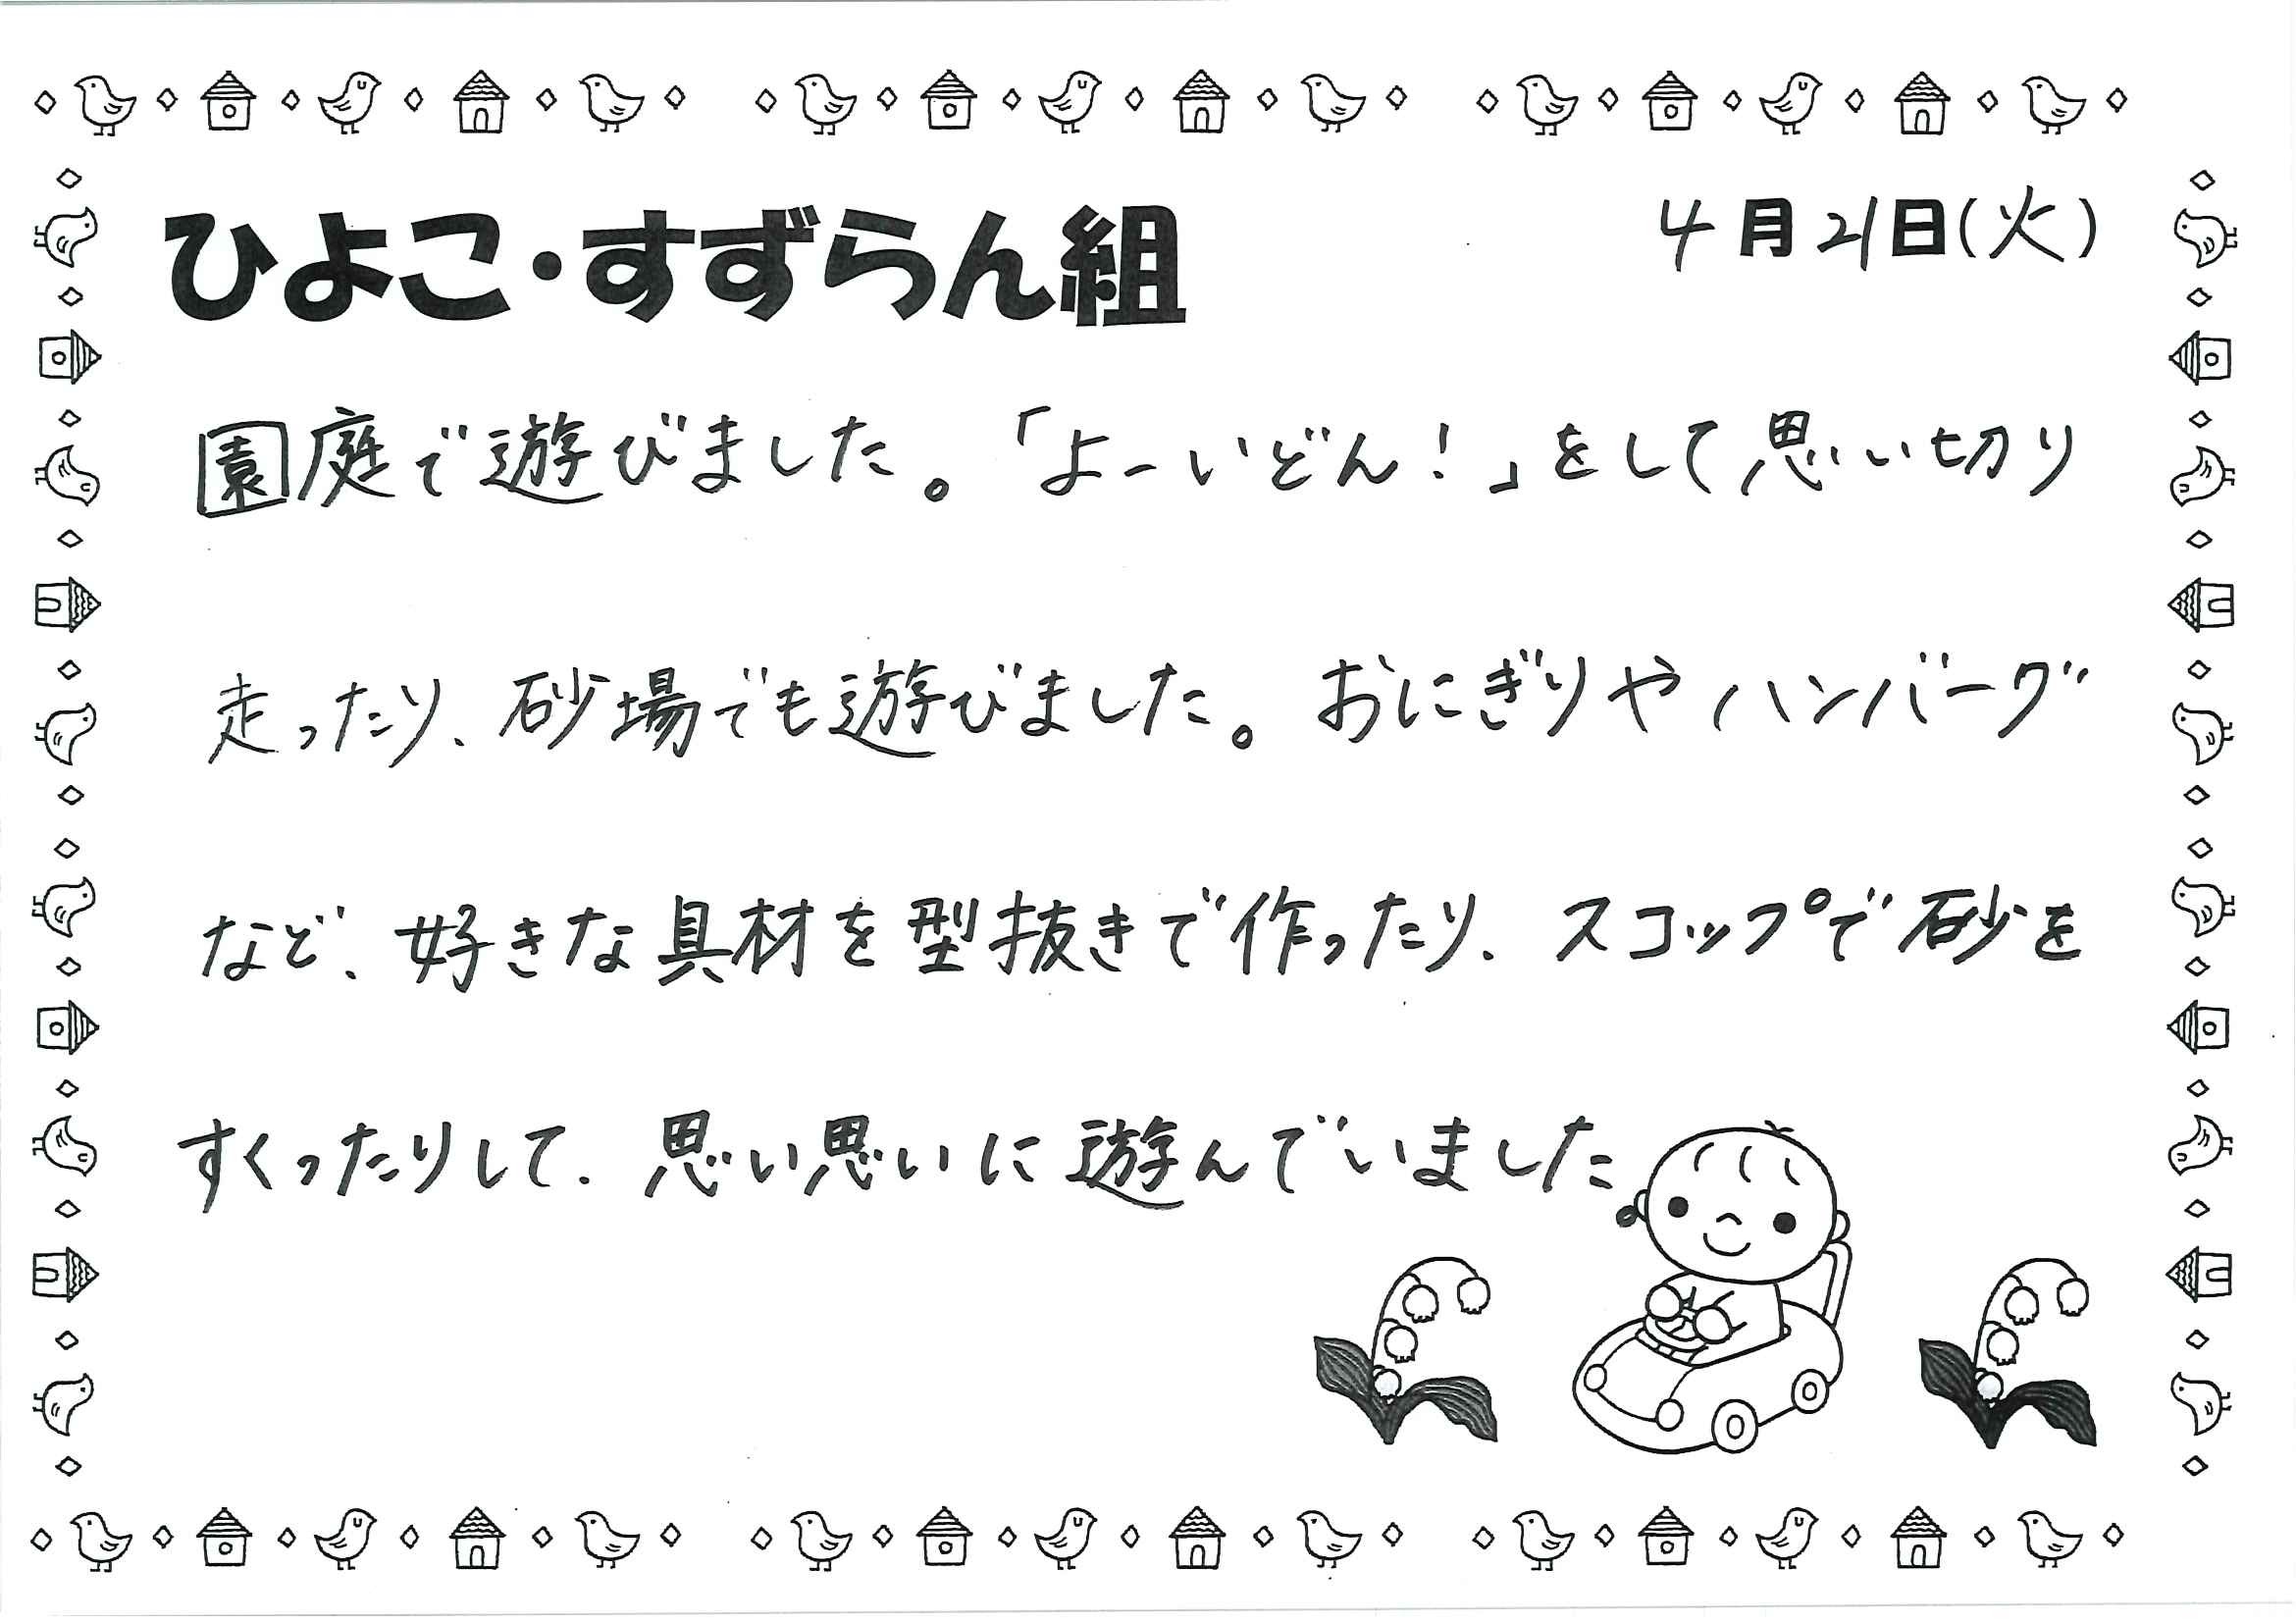 ひよこ・すずらん組
4月21日(火)
園庭で遊びました。「よーいどん!」をして思い切り
走ったり、砂場でも遊びました。おにぎりやハンバーグ
など、好きな具材を型抜きで作ったり、スコップで砂を
すくったりして、思い思いに遊んでいました